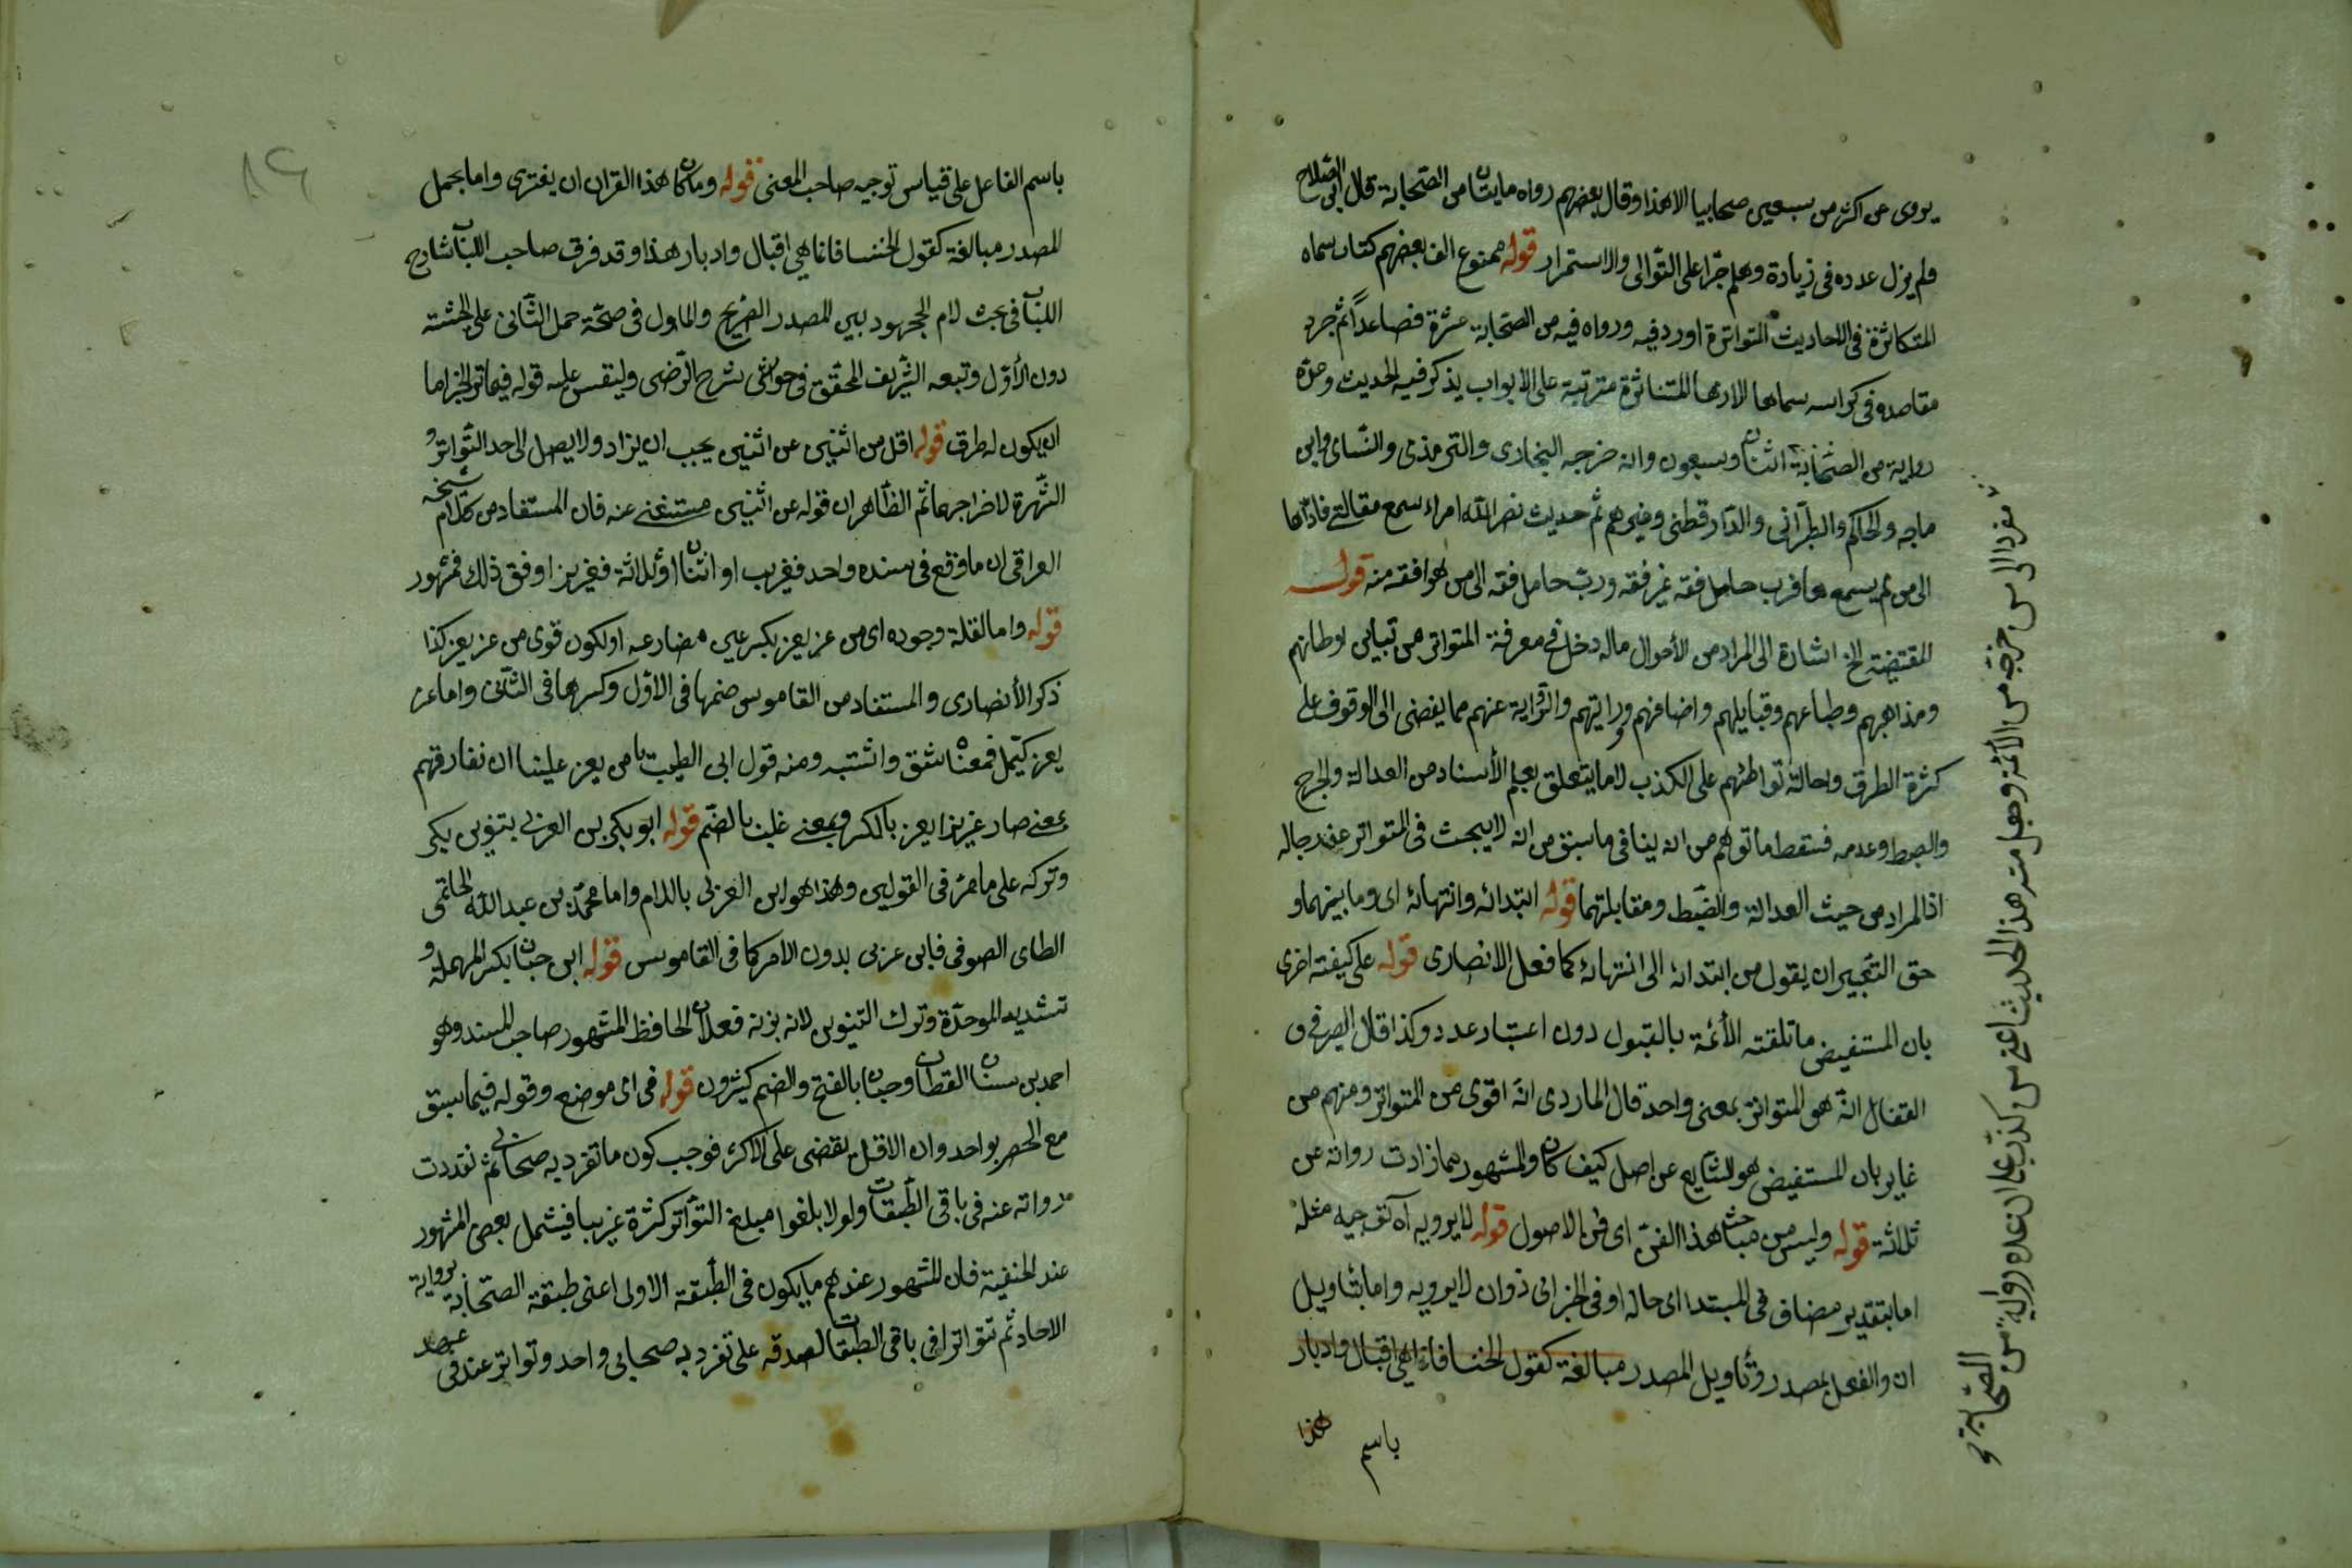 يروى عن اكثر من سبعين صحابيا الا هذا وقال بعضهم رواه مايتان من الصحابة قال ابن الصلاح
ولم يزل عدده في زيادة وهلم جرا على التوالى والاستمرار قوله ممنوع الف بعضهم كتابا سماه
المتكاثرة في الاحاديث المتواترة اورد فيه ورواه فيه من الصحابة عشرة فصاعدا ثم جرد
مقاصده في كراسه سماها الازهار المتناثرة مترتبة على الابواب يذكر فيه الحديث وعدة
رواية من الصحابة اثنان وسبعون وانه خرجه البخارى والترمذى والنساى وابن
ماجه والحاكم والطبرانى والدارقطنى وغيرهم ثم حديث نضر الله امراء سمع مقالتى فادّاها
الى من لم يسمعها فرب حامل فقه غير فقه ورب حامل فقه الى من هو افقه منه قوله
المقتضية الخ اشارة الى المراد من الأحوال ماله دخل في معرفة المتواتر من تباين اوطانهم
ومذاهبهم وطباعهم وقبايلهم واضافهم ورايتهم والقراية عنهم مما يفضى الى الوقوف على
كثرة الطرق واحالة تواطئهم على الكذب لا ما يتعلق بعلم الأسناد من العدالة والجرح
والضبط وعدمه فسقط ما توهم من انه ينافى ما سبق من انه لا يبحث فى المتواتر عن رجاله
اذ المراد من حيث العدالة والضبط ومقابلتهما قوله ابتدائه وانتهائه اى وما بينهما و
حق التعبير ان يقول من ابتدائه الى انتهائه كما فعل الانصارى قوله على كيفية اخرى
بان المستفيض ما تلقته الأئمة بالقبول دون اعتبار عدد وكذا قال الصيرفى و
القفال انه هو المتواتر بمعنى واحد قال الماردى انه اقوى من المتواتر ومنهم من
غاير بان المستفيض هو الشايع عن اصل كيف كان والمشهور ما زادت رواته عن
ثلاثة قوله وليس من مباحث هذا الفن اى فن الاصول قوله لا يرويه اه توجيه مثله
اما بتقدير مضاف فى المبتدا اى حاله او فى الخبر اى ذو ان لا يرويه واما بتاويل
ان والفعل بمصدر وتأويل المصدر مبالغة كقول الخنسا فانما هى اقبال وادبار
هذا
باسم
مفردا الى من خرجه من الأئمة وجعل منه هذا الحديث اعنى من كذب على ان عده رواية من
الصحابة
باسم الفاعل على قياس توجيه صاحب المغنى قوله وما كان هذا القران ان يفترى واما بجمل
المصدر مبالغة كقول الخنسا فانما هى اقبال وادبار هذا وقد فرق صاحب اللباب شارح
اللباب فى بحث لام الجهود بين المصدر الصريح والماول فى صحة حمل الثانى على الجثته
دون الأول وتبعه الشريف المحقق فى حواشى شرح الرضى وليقس عليه قوله فيما
ان يكون له طرق قوله اقل من اثنين عن اثنين يجب ان يزاد ولا يصل الى حد التواتر و
الشهرة لاخراجهما ثم الظاهر ان قوله عن اثنين مستغنى عنه فان المستفاد من كلام شيخه
العراقى ان ما وقع فى سنده واحد فغريب او اثنان او ثلاثة فعزيز او فوق ذلك فمشهور
قوله واما لقلة وجوده اى من عز يعز بكسر عين مضارعه او لكون قوى من عز يعز كذا
ذكر الأنصارى والمستفاد من القاموس ضمها فى الاول وكسرها فى الثانى واما عز
يعز كيمل فمعناه شق واشتبد ومنه قول ابى الطيب يا من يعز علينا ان نفارقهم
بمعنى صار عزيزا يعز بالكسر وبمعنى غلب بالضم قوله ابو بكر بن العربى بتنوين بكر
وتركه على ما مر فى القولين وهذا هو ابن العربى باللام واما محمد بن عبد الله الحاتمى
الطاى الصوفى فابن عربى بدون اللام كما فى القاموس قوله ابن حبان بكسر المهملة و
تشديد الموحدة وترك التنوين لانه بزنة فعلان الحافظ المشهور صاحب المسند وهو
احمد بن سنان القطان وحبان بالفتح والضم كثيرون قوله فى اى موضع وقوله فيما سبق
مع الحصر بواحد وان الاقل يقضى على الاكثر فوجب كون ما تفرد به صحابى ثم تعددت
رواته عنه فى باقى الطبقات ولو لا بلغوا مبلغ التواتر كثرة غريبا فيشمل بعض المشهور
عند الحنفية فان المشهور عندهم ما يكون فى الطبقة الاولى اعنى طبقة الصحابة برواية
الاحاد ثم تتواتر فى باقى الطبقات لصدقه على تفرد به صحابى واحد وتواتر عنه فى